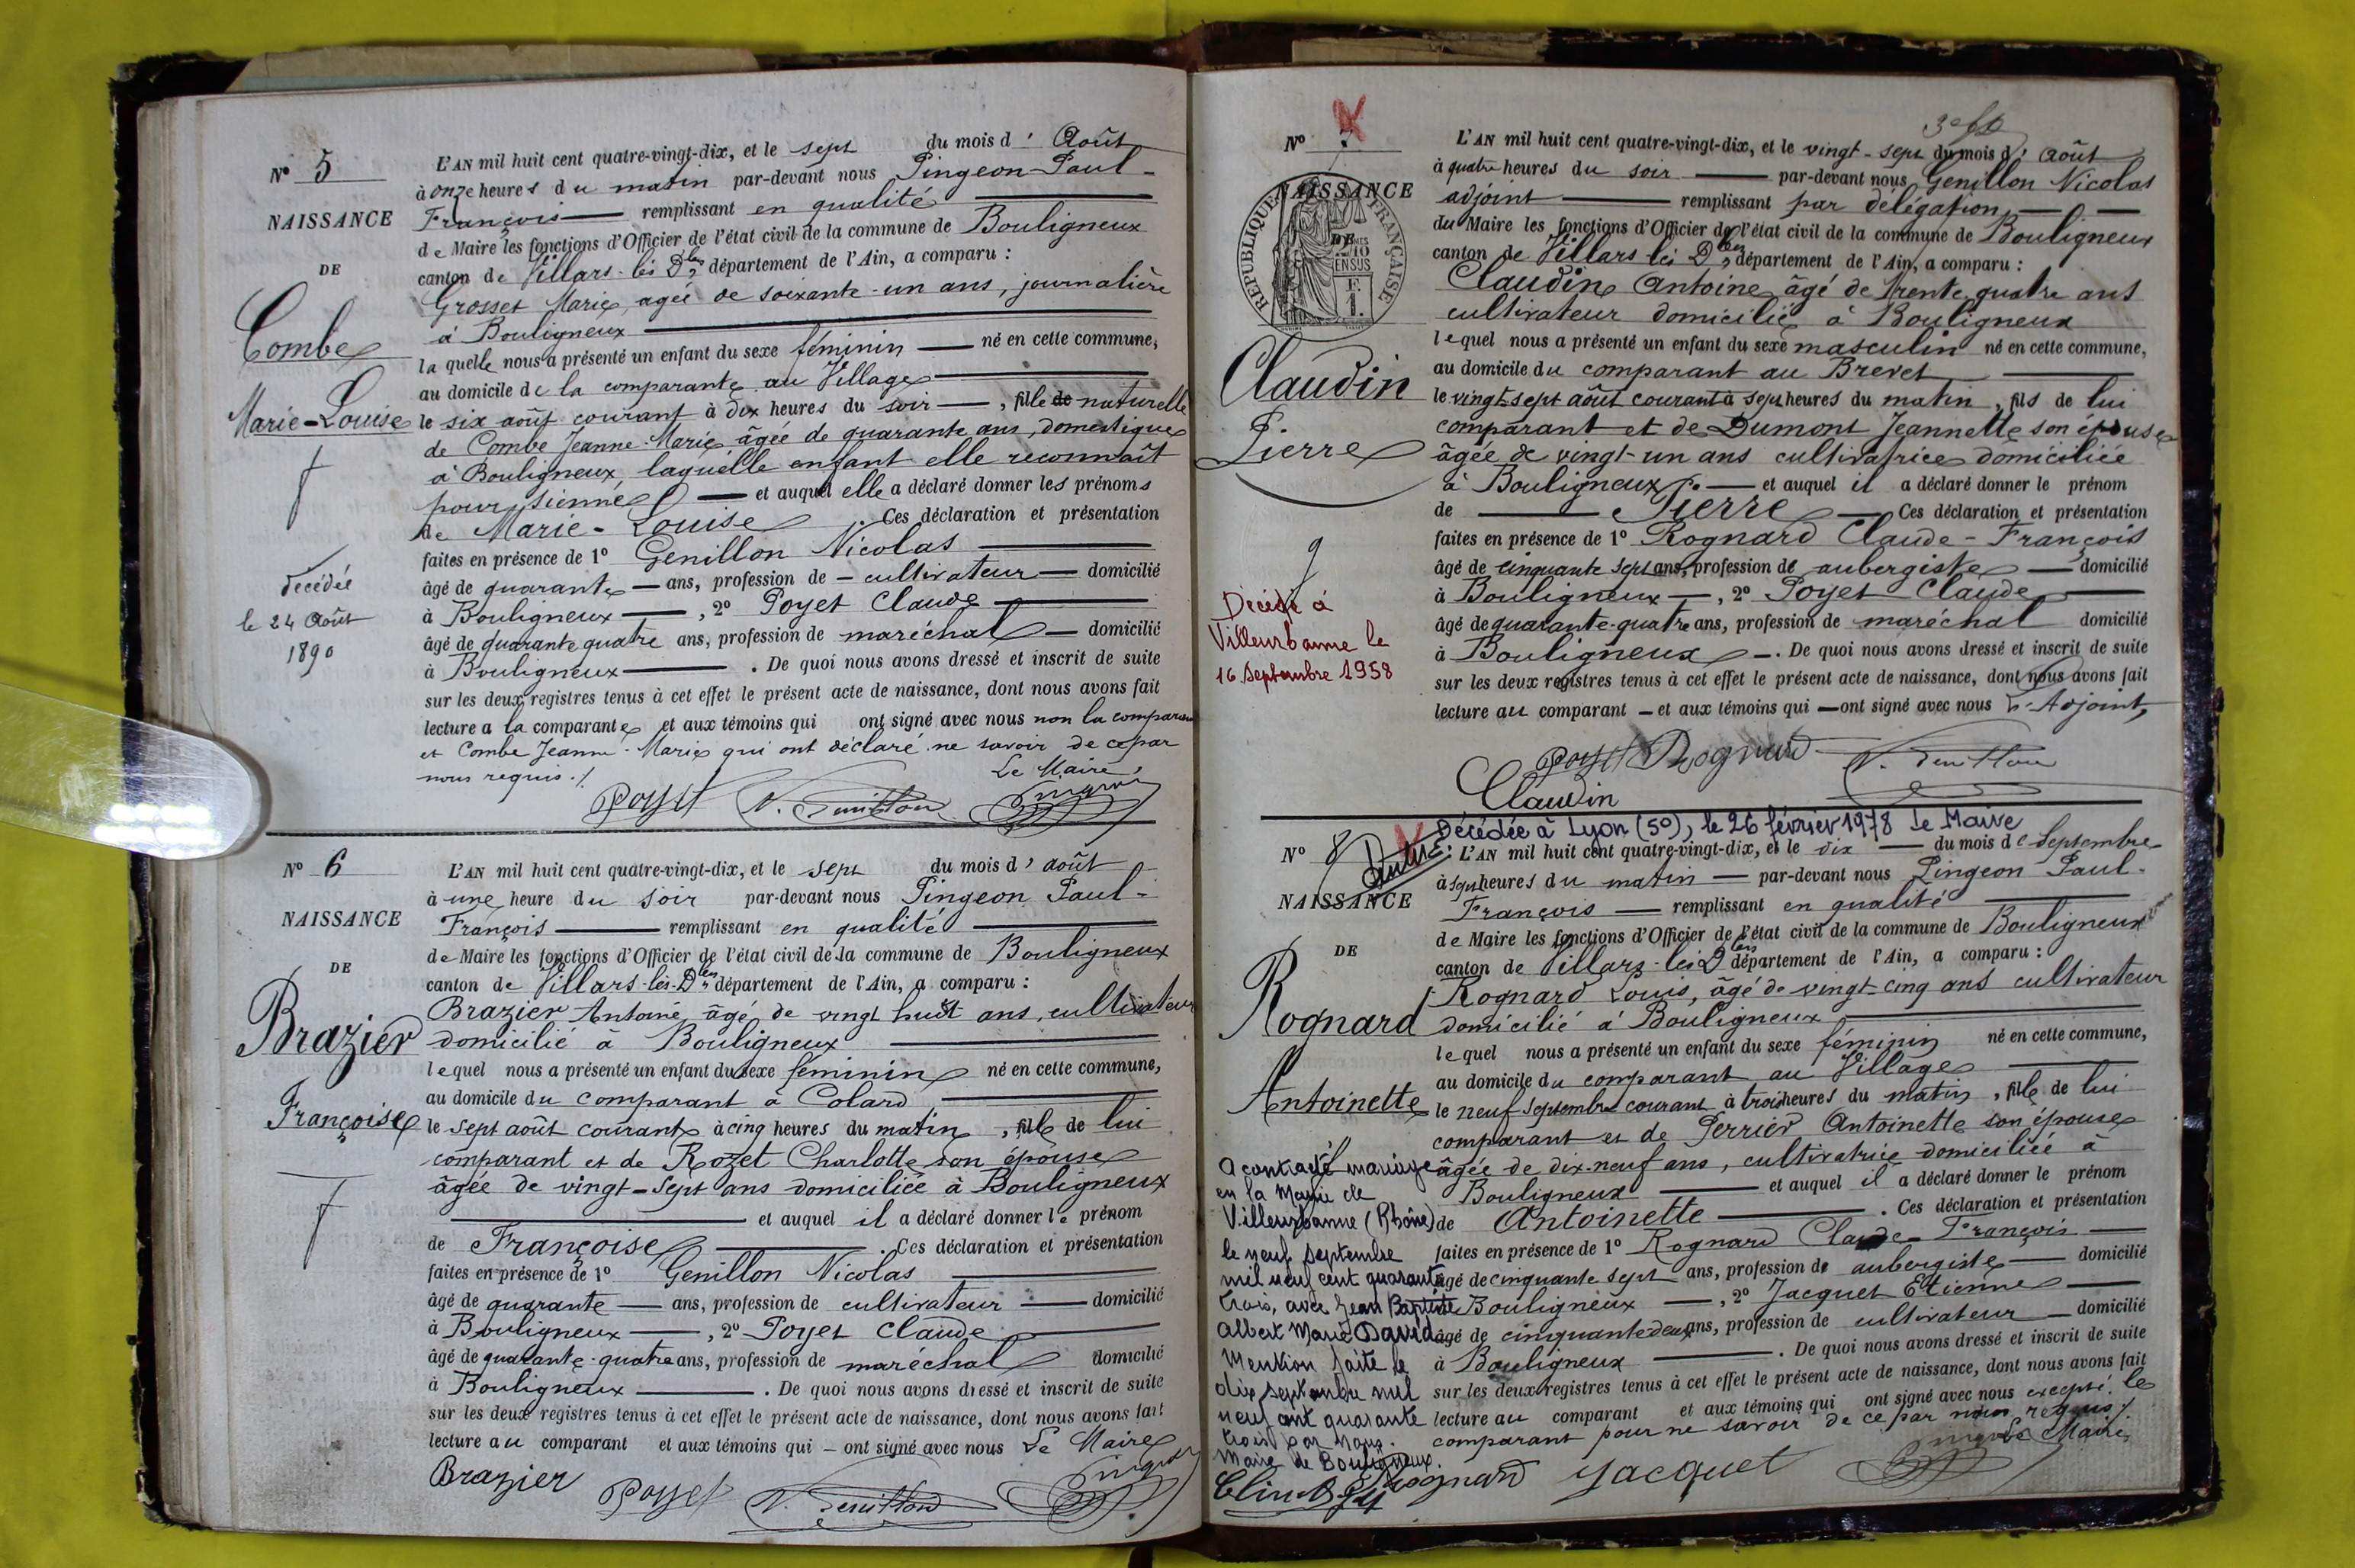 N° 5
NAISSANCE
DE
Combe
Marie-Louise
décédée
le 24 Août
1890
L'AN mil huit cent quatre-vingt-dix, et le sept du mois d' Août
à onze heures du matin par-devant nous Pingeon Paul-
François remplissant en qualité
de Maire les fonctions d'Officier de l'état civil de la commune de Bouligneux
canton de Villars-lès-D.bes département de l'Ain, a comparu :
Grosset Marie, agée de soixante-un ans, journalière
à Bouligneux
laquelle nous a présenté un enfant du sexe féminin né en cette commune,
au domicile de la comparante au Village
le six août courant à dix heures du soir, fille de naturelle
de Combe Jeanne-Marie âgée de quarante ans, domestique
à Bouligneux, laquelle enfant elle reconnaît
pour sienne et auquel elle a déclaré donner les prénoms
de Marie-Louise. Ces déclaration et présentation
faites en présence de 1° Genillon Nicolas
âgé de quarante ans, profession de cultivateur domicilié
à Bouligneux, 2° Poyet Claude
âgé de quarante quatre ans, profession de maréchal domicilié
à Bouligneux. De quoi nous avons dressé et inscrit de suite
sur les deux registres tenus à cet effet le présent acte de naissance, dont nous avons fait
lecture a la comparante et aux témoins qui ont signé avec nous non la comparante
et Combe Jeanne-Marie qui ont déclaré ne savoir de ce par
nous requis ./.
Le Maire,
Poyet N. Genillon Pingeon
N° 6
NAISSANCE
DE
Brazier
Françoise
L'AN mil huit cent quatre-vingt-dix, et le sept du mois d' août
à une heure du soir par-devant nous Pingeon Paul-
François remplissant en qualité
de Maire les fonctions d'Officier de l'état civil de la commune de Bouligneux
canton de Villars-lès-D.bes département de l'Ain, a comparu :
Brazier Antoine, âgé de vingt huit ans, cultivateur
domicilié à Bouligneux
lequel nous a présenté un enfant du sexe féminin né en cette commune,
au domicile du comparant à Colard
le sept août courant à cinq heures du matin, fille de lui
comparant et de Rozet Charlotte son épouse
âgée de vingt-sept ans domiciliée à Bouligneux
et auquel il a déclaré donner le prénom
de Françoise. Ces déclaration et présentation
faites en présence de 1° Genillon Nicolas
âgé de quarante ans, profession de cultivateur domicilié
à Bouligneux, 2° Poyet Claude
âgé de quarante-quatre ans, profession de maréchal domicilié
à Bouligneux. De quoi nous avons dressé et inscrit de suite
sur les deux registres tenus à cet effet le présent acte de naissance, dont nous avons fait
lecture au comparant et aux témoins qui ont signé avec nous Le Maire
Brazier Poyet N. Genillon Pingeon
N° 7
NAISSANCE
DE
RÉPUBLIQUE FRANÇAISE
Claudin
Pierre
Décédé à
Villeurbanne le
16 Septembre 1958
L'AN mil huit cent quatre-vingt-dix, et le vingt-sept du mois d' août
à quatre heures du soir par-devant nous Genillon Nicolas
adjoint remplissant par délégation
du Maire les fonctions d'Officier de l'état civil de la commune de Bouligneux
canton de Villars les D.bes département de l'Ain, a comparu :
Claudin Antoine âgé de trente quatre ans
cultivateur domicilié à Bouligneux
lequel nous a présenté un enfant du sexe masculin né en cette commune,
au domicile du comparant au Brevet
le vingt-sept août courant à sept heures du matin, fils de lui
comparant et de Dumont Jeannette son épouse
âgée de vingt-un ans cultivatrice domiciliée
à Bouligneux et auquel il a déclaré donner le prénom
de Pierre Ces déclaration et présentation
faites en présence de 1° Rognard Claude-François
âgé de cinquante sept ans, profession de aubergiste domicilié
à Bouligneux, 2° Poyet Claude
âgé de quarante-quatre ans, profession de maréchal domicilié
à Bouligneux. De quoi nous avons dressé et inscrit de suite
sur les deux registres tenus à cet effet le présent acte de naissance, dont nous avons fait
lecture au comparant et aux témoins qui ont signé avec nous L'Adjoint,
Poyet Rognard N. Genillon
Claudin
Décédée à Lyon (5°), le 26 février 1978 Le Maire
N° 8
NAISSANCE
DE
Rognard
Antoinette
a contracté mariage
en la Mairie de
Villeurbanne (Rhône)
le neuf septembre
mil neuf cent quarante
trois, avec Jean Baptiste
Albert Marie David
Mention faite le
dix septembre mil
neuf cent quarante
trois par nous.
Maire de Bouligneux.
L'AN mil huit cent quatre-vingt-dix, et le dix du mois de Septembre
à sept heures du matin par-devant nous Pingeon Paul-
François remplissant en qualité
de Maire les fonctions d'Officier de l'état civil de la commune de Bouligneux
canton de Villars-les-D.bes département de l'Ain, a comparu :
Rognard Louis, âgé de vingt-cinq ans cultivateur
domicilié à Bouligneux
lequel nous a présenté un enfant du sexe féminin né en cette commune,
au domicile du comparant au Village
le neuf Septembre courant à trois heures du matin, fille de lui
comparant et de Perrier Antoinette son épouse
âgée de dix-neuf ans, cultivatrice domiciliée à
Bouligneux et auquel il a déclaré donner le prénom
de Antoinette. Ces déclaration et présentation
faites en présence de 1° Rognard Claude-François
âgé de cinquante sept ans, profession de aubergiste domicilié
Bouligneux, 2° Jacquet Etienne
âgé de cinquante deux ans, profession de cultivateur domicilié
à Bouligneux. De quoi nous avons dressé et inscrit de suite
sur les deux registres tenus à cet effet le présent acte de naissance, dont nous avons fait
lecture au comparant et aux témoins qui ont signé avec nous excepté le
comparant pour ne savoir de ce par nous requis ./.
Le Maire,
Rognard Jacquet Pingeon